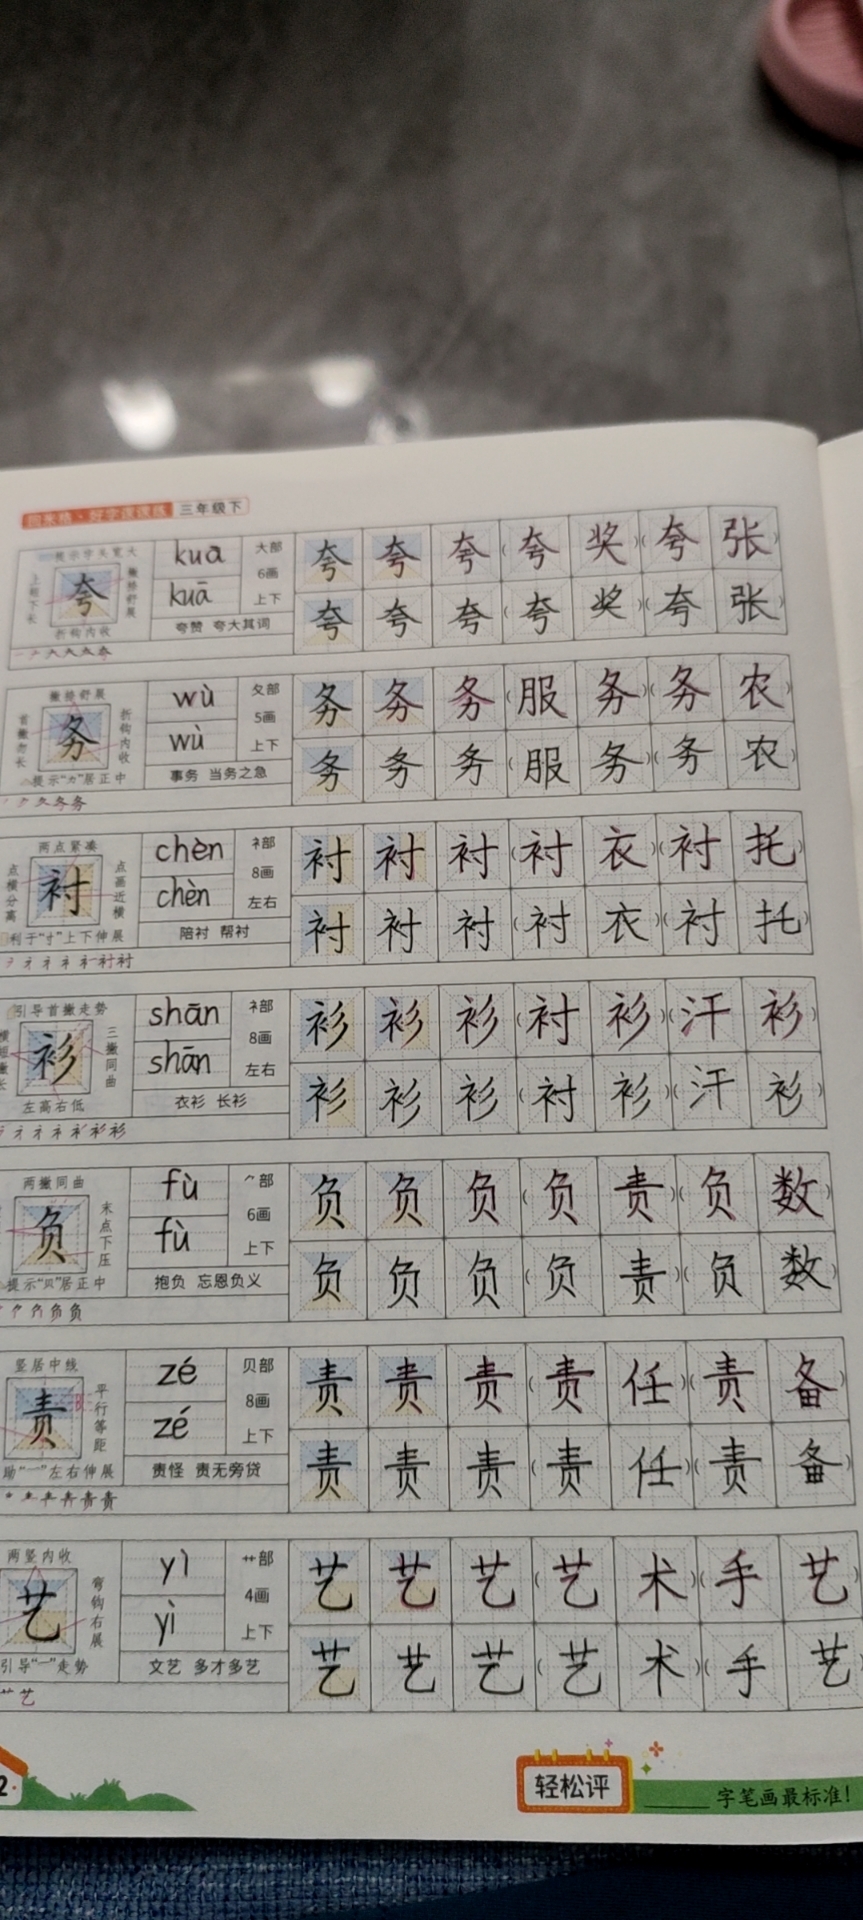 田末格·好字课课练 三年级下
提示字头宽大
上短下长
夸
撇捺舒展
折钩内收
kuā 大部
kuā 6画
上下
夸赞 夸大其词
夸 夸 夸 (夸 奖)(夸 张)
夸 夸 夸 (夸 奖)(夸 张)
撇捺舒展
首撇勿长
务
折钩内收
提示“力”居正中
wù 夂部
wù 5画
上下
事务 当务之急
务 务 务 (服 务)(务 农)
务 务 务 (服 务)(务 农)
两点紧凑
点横分离
衬
点画近横
利于“寸”上下伸展
chèn 衤部
chèn 8画
左右
陪衬 帮衬
衬 衬 衬 (衬 衣)(衬 托)
衬 衬 衬 (衬 衣)(衬 托)
引导首撇走势
横短撇长
衫
三撇同曲
左高右低
shān 衤部
shān 8画
左右
衣衫 长衫
衫 衫 衫 (衬 衫)(汗 衫)
衫 衫 衫 (衬 衫)(汗 衫)
两撇同曲
负
末点下压
提示“贝”居正中
fù ⺈部
fù 6画
上下
抱负 忘恩负义
负 负 负 (负 责)(负 数)
负 负 负 (负 责)(负 数)
竖居中线
责
平行等距
助“一”左右伸展
zé 贝部
zé 8画
上下
责怪 责无旁贷
责 责 责 (责 任)(责 备)
责 责 责 (责 任)(责 备)
两竖内收
艺
弯钩右展
引导“一”走势
yì 艹部
yì 4画
上下
文艺 多才多艺
艺 艺 艺 (艺 术)(手 艺)
艺 艺 艺 (艺 术)(手 艺)
2
轻松评
字笔画最标准!